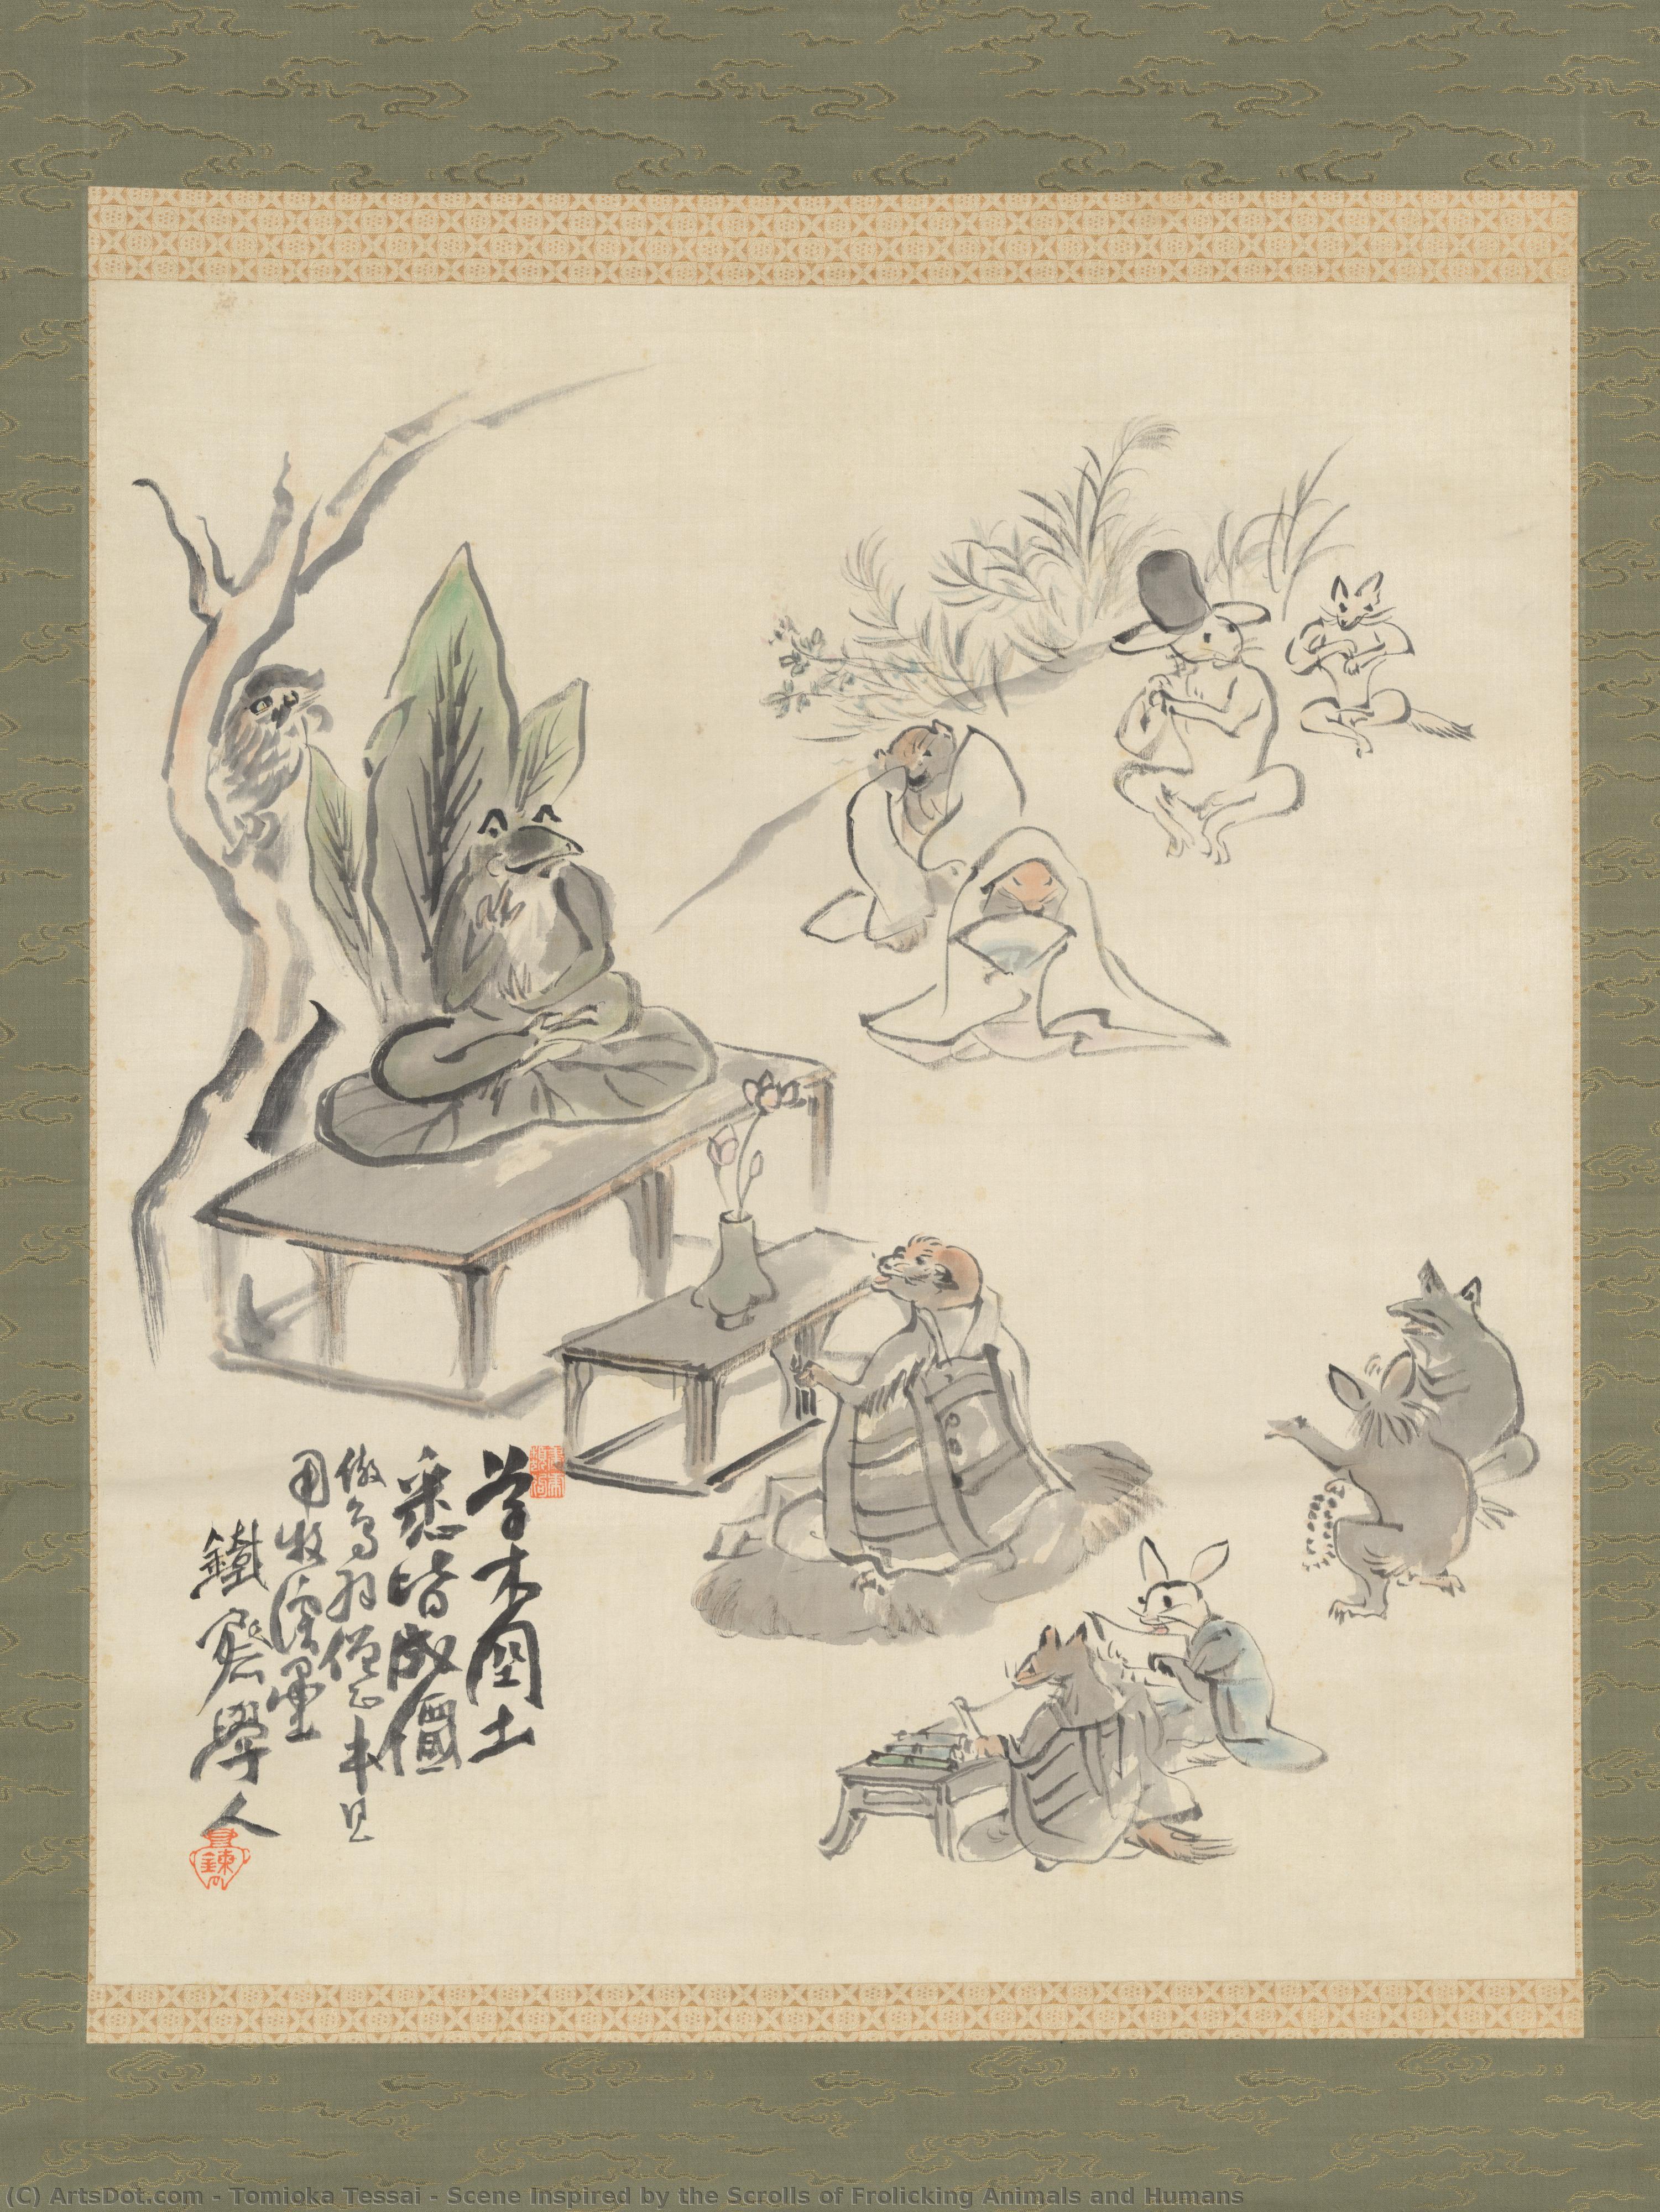 草木国土
悉皆成
倣鳥羽僧正本且
用牧溪墨
鐵齋學人
(C) ArtsDot.com - Tomioka Tessai - Scene Inspired by the Scrolls of Frolicking Animals and Humans